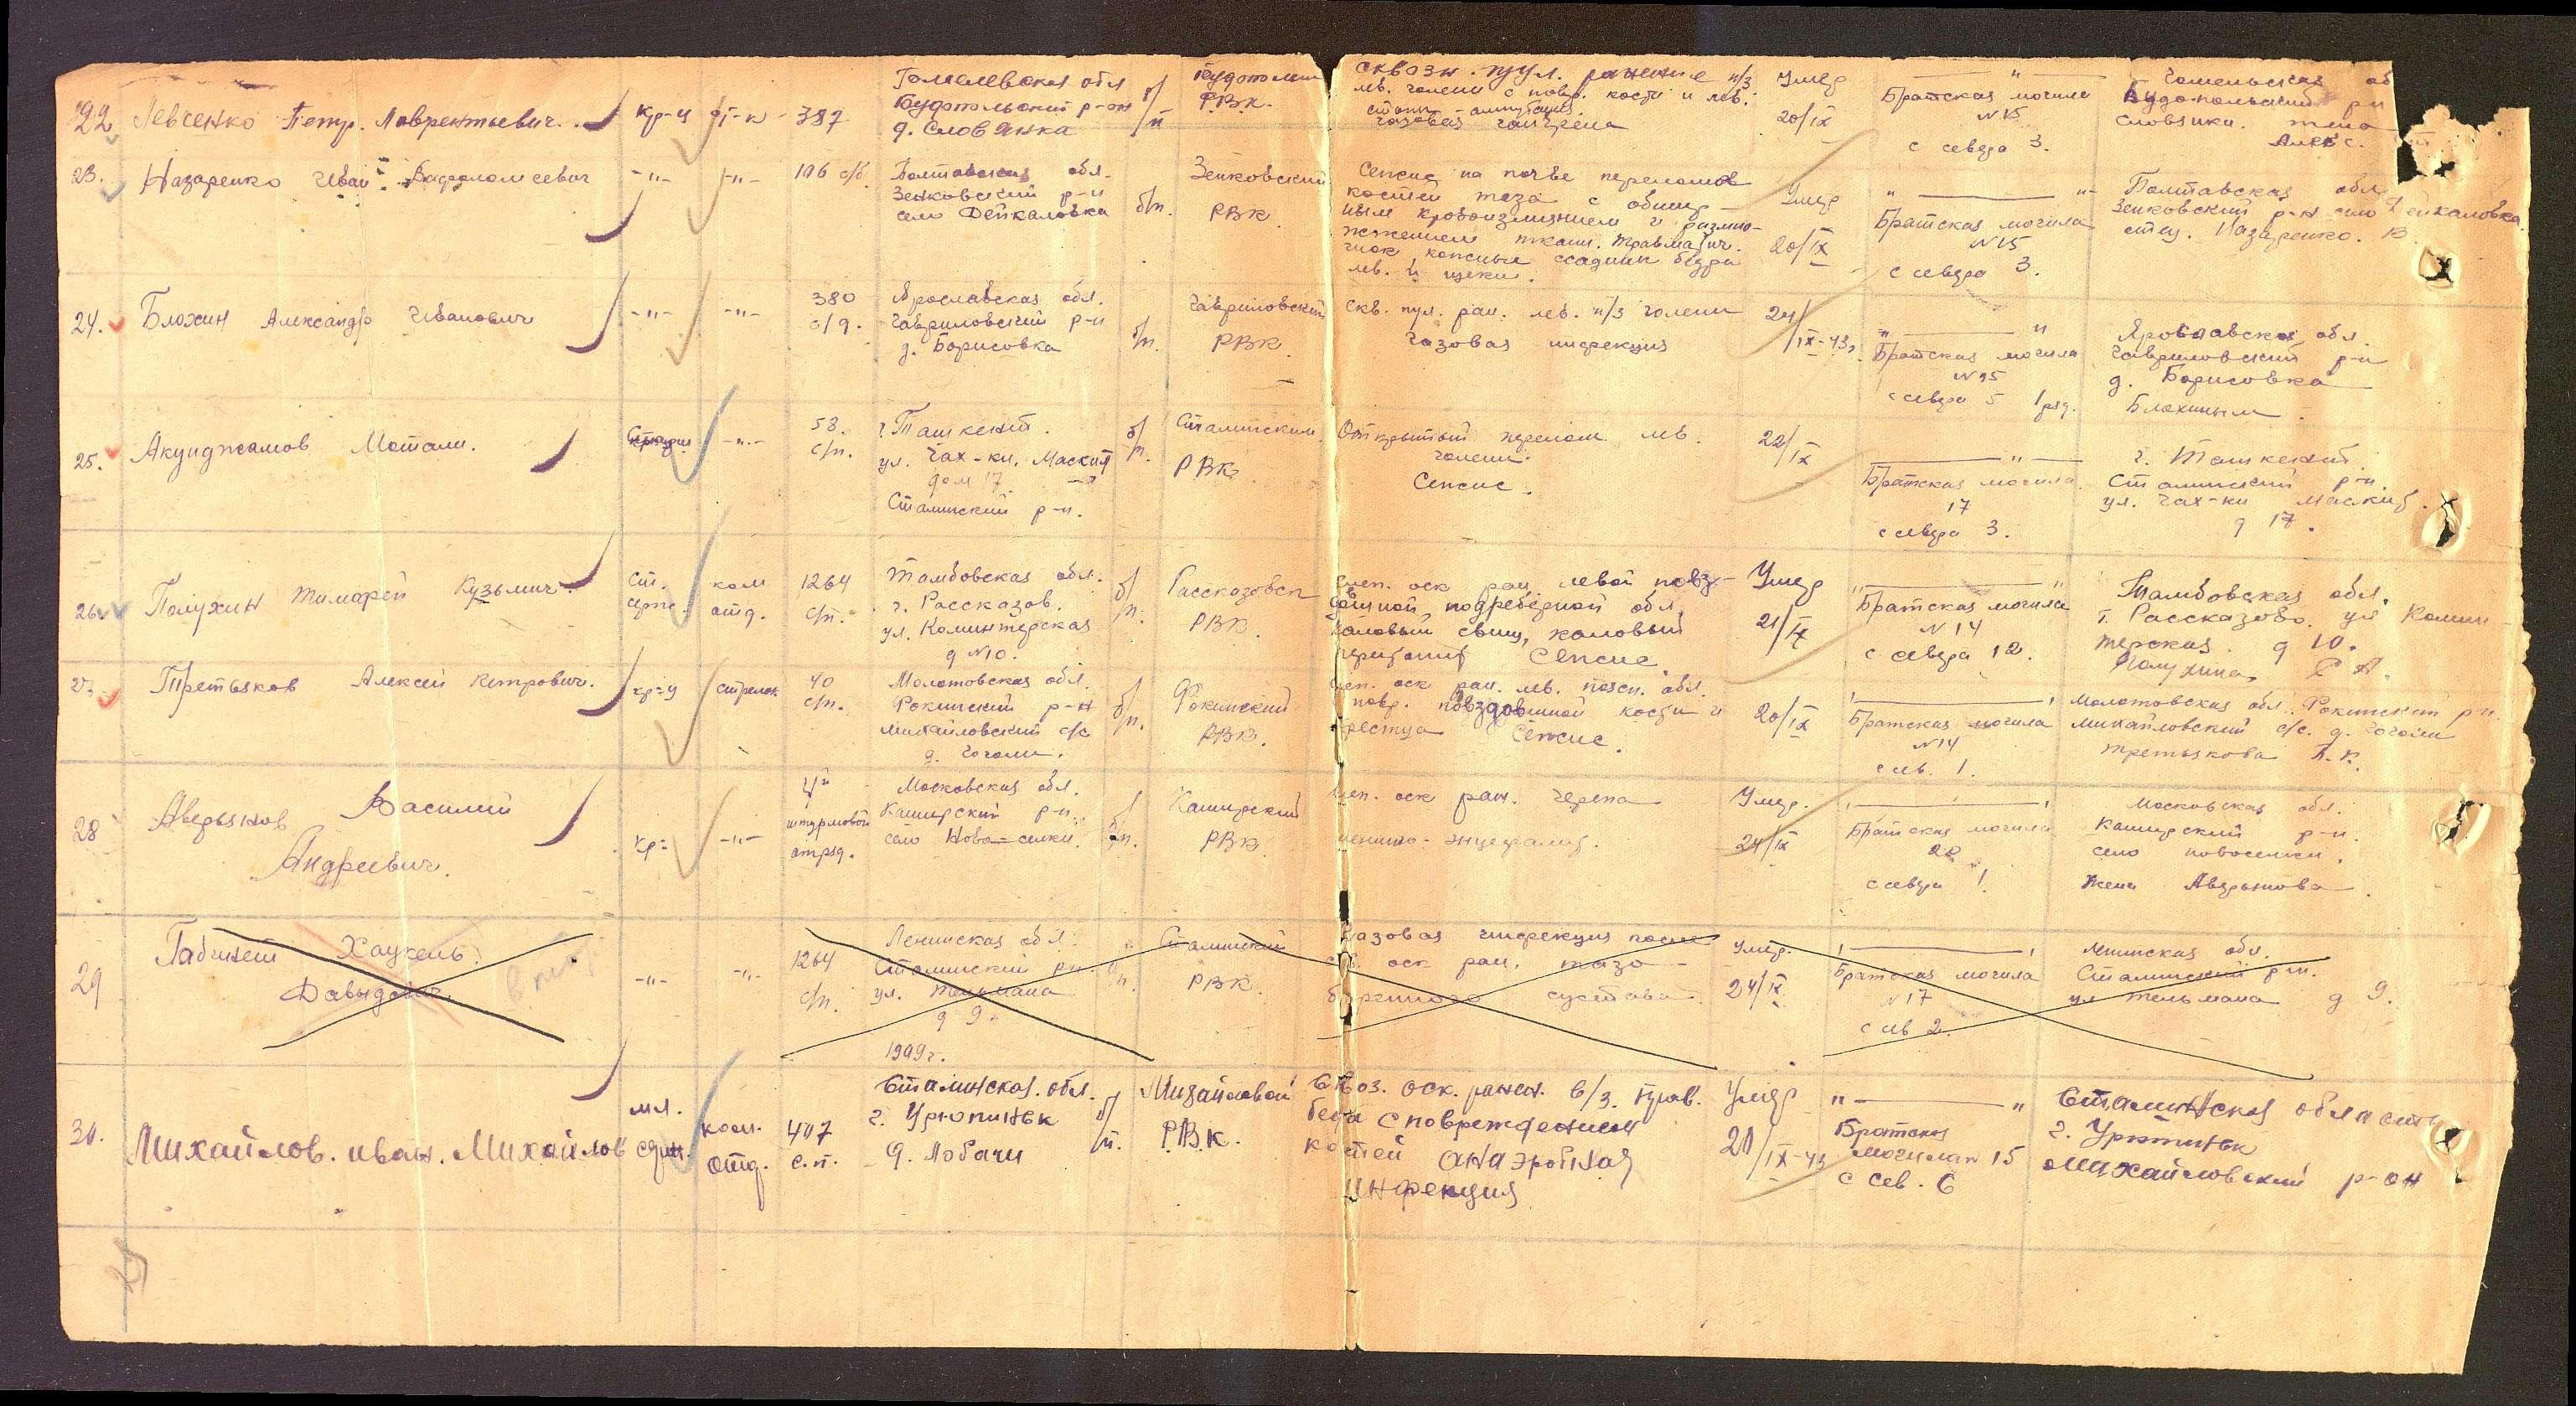 22 Левченко Петр. Лаврентьевич. кр-ц ст-к 387
Гомелевская обл
Будопольский р-он
д. Словянка
б/п
РВК.
сквозн. пул. ранение н/з
лев. голени с повр. кости и лев.
стопы - ампутация.
газовая гангрена
Умер
20/IX
— " —
Братская могила
N 15
с севера 3.
Гомельская об
Будопольский р-н
Словянка. жена
Алекс.
23. Назаренко Иван Варфоломеевич -"- -"- 106 с/б
Полтавская обл.
Зенковский р-н
село Дейкаловка
б/п.
Зенковский
РВК
Сепсис на почве переломов
костей таза с обшир-
ным кровоизлиянием и размно-
жжением ткани. Травматич.
шок, кожные ссадины бедра
лев. и щеки.
Умер
20/IX
" — "
Братская могила
N 15
с севера 3.
Полтавская обл
Зенковский р-н село Дейкаловка
отец. Назаренко. В
24. Блохин Александр Иванович -"- -"- 380
с/д.
Ярославская обл.
Гавриловский р-н
д. Борисовка
б/п.
Гавриловский
РВК
Скв. пул. ран. лев. н/з голени
Газовая инфекция
24/IX-43г
" — "
Братская могила
N 15
с севера 5 1 ряд.
Ярославская обл.
Гавриловский р-н
д. Борисовка
Блохиным.
25. Акунджамов Мотали. -"- 53.
с/п.
г. Ташкент.
ул. Чах-ки. Маскит
дом 17
Сталинский р-н.
б/п.
Сталинский
РВК
Открытый перелом лев.
голени.
Сепсис.
22/IX
— " —
Братская могила
17
с севера 3.
г. Ташкент.
Сталинский р-н.
ул. Чах-ки Маскит.
д 17.
26. Полухин Тимофей Кузьмич. ст. серж. ком отд. 1264
с/п.
Тамбовская обл.
г. Рассказов.
ул. Коминтерская
д N10.
б/п.
Рассказовск
РВК
слеп. оск ран. левой повз-
дошной, подреберной обл.
каловый свищ, каловый
перитонит Сепсис.
Умер
21/IX
" — "
Братская могила
N 14
с севера 12.
Тамбовская обл.
г. Рассказово. ул Комин-
терская. д 10.
Полухина Р А.
27. Третьяков Алексей Петрович. кр-ц стрелок 40
с/п.
Молотовская обл.
Фокинский р-н
Михайловский с/с
д. Гоголи.
б/п.
Фокинский
РВК.
слеп. оск ран. лев. поясн. обл.
повр. повздошной кости и
крестца Сепсис.
20/IX
Братская могила
N14
с сев. 1.
Молотовская обл. Фокинский р-н.
Михайловский с/с. д. Гоголи
Третьякова П.К.
28 Аверьянов Василий
Андреевич.
кр- -"-
штурмовой
отряд.
Московская обл.
Каширский р-н.
село Ново-селки.
б/п.
Каширский
РВК
слеп. оск ран. черепа
менинго-энцефалит.
Умер.
24/IX
Братская могила
22
с севера 1.
Московская обл.
Каширский р-н.
село Новоселки.
жена Аверьянова.
29 Хацкель
Давыдович.
-"- -"- 1264
с/п.
Ленинская обл.
Сталинский р-н.
ул. Тельмана
д 9.
Сталинский
РВК.
Газовая инфекция после
оск ран. тазо-
бедренного сустава.
Умер.
24/IX
Братская могила
N 17
с сев 2.
Ленинская обл.
Сталинский р-н.
ул Тельмана д 9.
30. Михайлов. Иван. Михайлов
мл.
ком.
отд.
407
с.п.
1909г.
Сталинская. обл.
г. Урюпинск
д. Лобачи
б/п.
Михайловск
РВК.
Сквоз. оск. ранен. в/з. прав.
бедра с повреждением
костей анаэробная
инфекция
Умер
20/IX-43
" — "
Братская
могила N 15
с сев. 6
Сталинская область
г. Урюпинск
Михайловский р-он